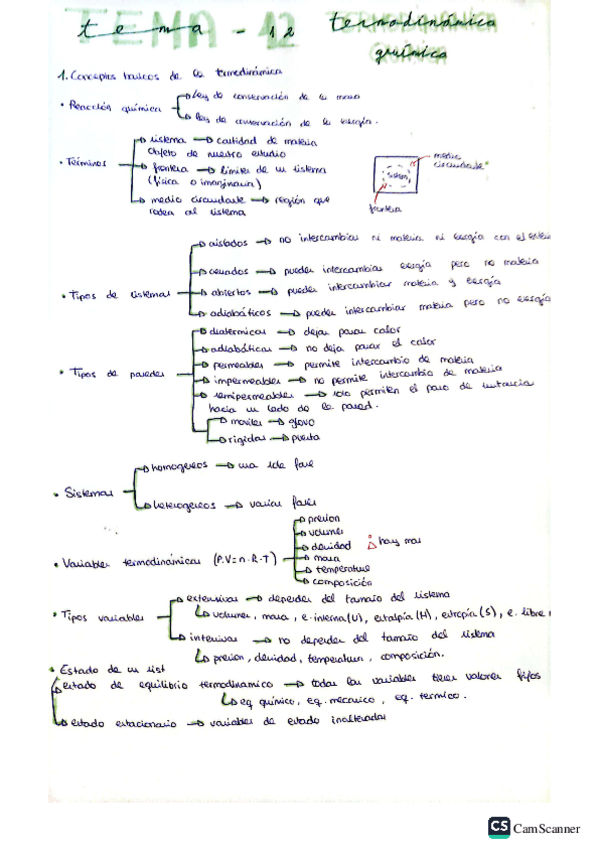 tema - 12 termodinámica
química
1. Conceptos basicos de la termodinámica
• Reacción química → ley de conservación de la masa
→ ley de conservación de la energía.
• Términos → sistema → cantidad de materia
objeto de nuestro estudio
→ frontera → límites de un sistema
(física o imaginaria)
→ medio circundante → región que
rodea al sistema
medio
circundante
sistema
frontera
• Tipos de sistemas → aislados → no intercambian ni materia ni energía con el exterior
→ cerrados → pueden intercambiar energía pero no materia
→ abiertos → pueden intercambiar materia y energía
→ adiabáticos → pueden intercambiar materia pero no energía
• Tipos de paredes → diatermicas → dejan pasar calor
→ adiabáticas → no deja pasar el calor
→ permeables → permite intercambio de materia
→ impermeables → no permite intercambio de materia
→ semipermeables → solo permiten el paso de sustancia
hacia un lado de la pared.
→ moviles → globo
→ rigidas → puerta
• Sistemas → homogeneos → una sola fase
→ heterogeneos → varias fases
• Variables termodinámicas (P.V=n.R.T) → presion
→ volumen
→ densidad
→ masa
→ temperatura
→ composición
hay mas
• Tipos variables → extensivas → dependen del tamaño del sistema
↳ volumen, masa, e. interna (U), entalpía (H), entropía (S), e. libre
→ intensivas → no dependen del tamaño del sistema
↳ presion, densidad, temperatura, composición.
• Estado de un sist
→ estado de equilibrio termodinamico → todas las variables tienen valores fijos
↳ eq químico, eq. mecanico, eq. termico.
→ estado estacionario → variables de estado inalteradas
CS CamScanner